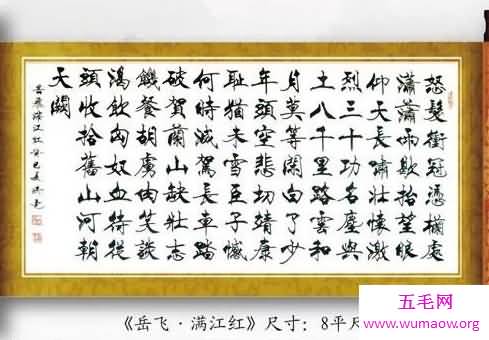 怒髮衝冠憑欄處
瀟瀟雨歇抬望眼
仰天長嘯壯懷激
烈三十功名塵與
土八千里路雲和
月莫等閑白了少
年頭空悲切靖康
恥猶未雪臣子憾
何時滅駕長車踏
破賀蘭山缺壯志
饑餐胡虜肉笑談
渴飲匈奴血待從
頭收拾舊山河朝
天闕
岳飛滿江紅癸巳夏
《岳飞·满江红》尺寸：8平尺
五毛网
www.wumaow.org